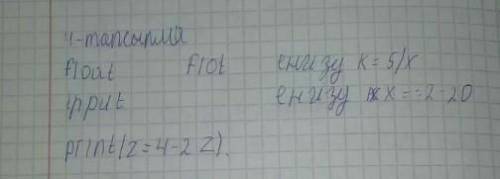 4-тапсырма
float flot енгізу k = 5/x
input енгізу x = -2 - 20
print(z = 4 - 2 z).